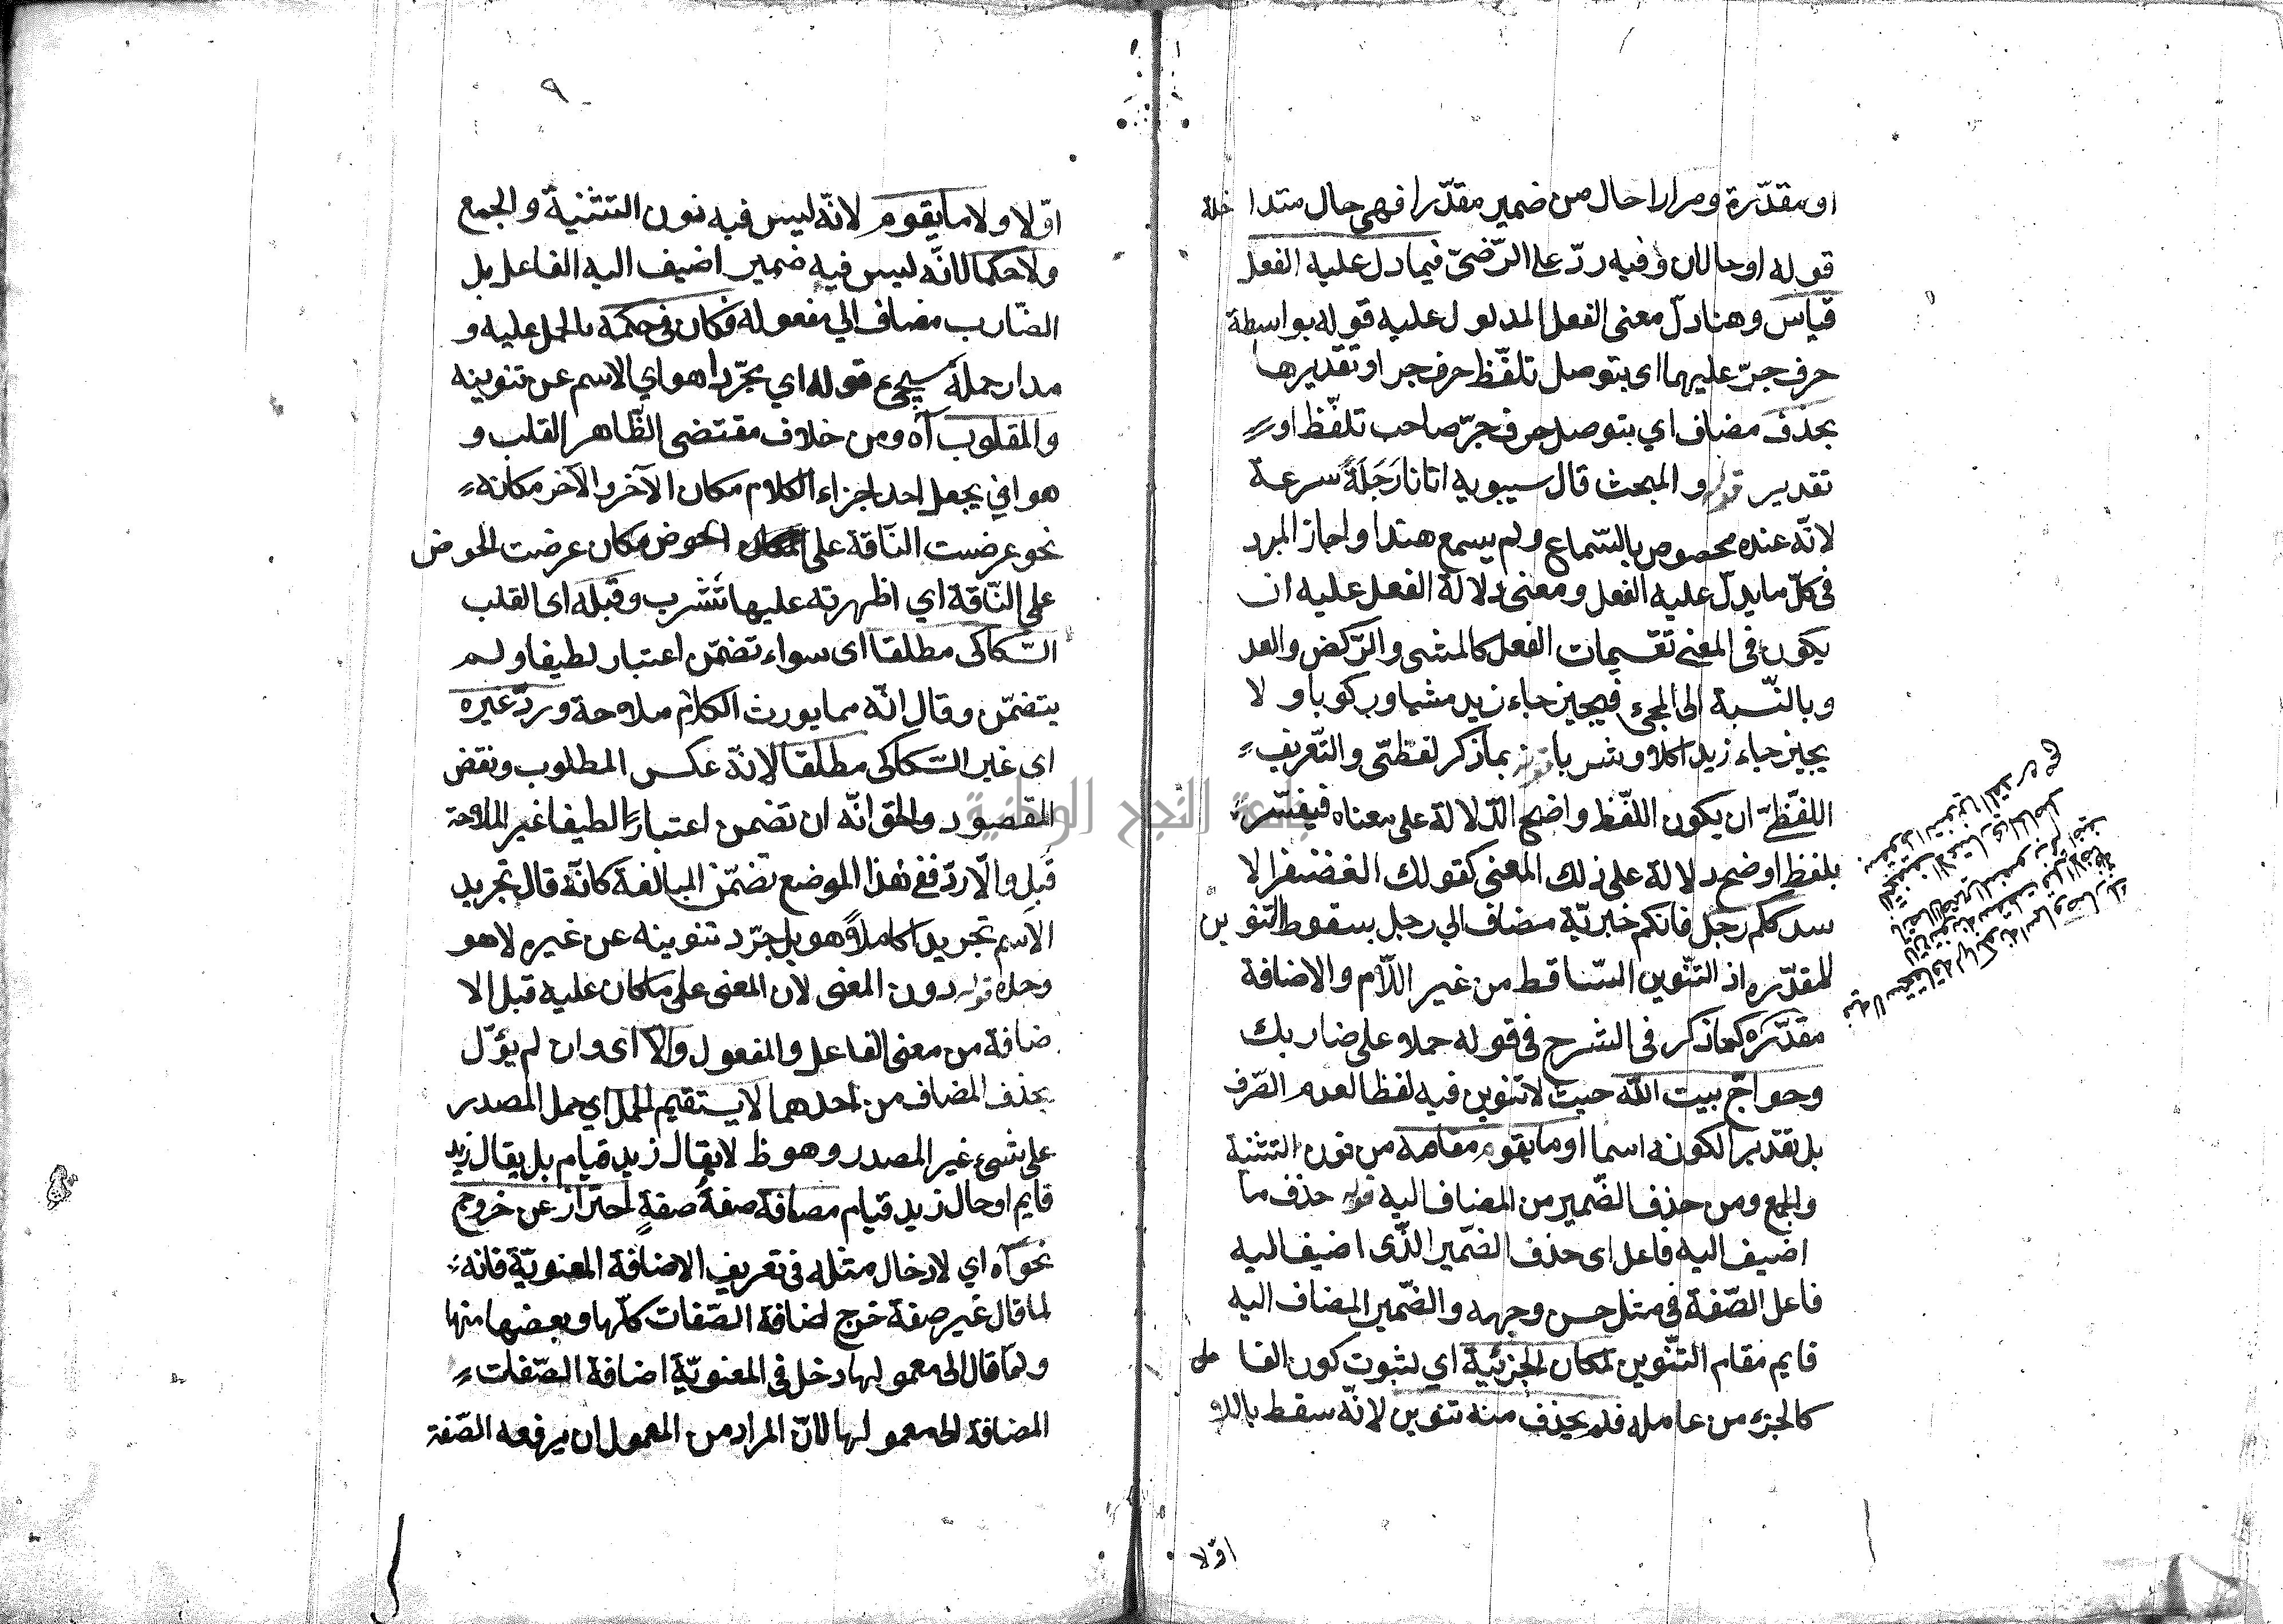 او مقدّرة ومرارا حال من ضمير مقدّرا فهي حال متداخلة
قوله او حالان وفيه ردّ على الرّضىّ فيما دل عليه الفعل
قياس وهنا دلّ معنى الفعل المدلول عليه قوله بواسطة
حرف جرّ عليهما اى بتوصل تلفّظ حرف جر او تقديرها
بحذف مضاف اي بتوصل حرف جرّ صاحب تلفّظ او
تقدير قوله والمبحث قال سيبويه اتانا رَجَلَةً سرعة
لانّه عنده مخصوص بالسّماع ولم يسمع هذا واجاز المبرد
فى كلّ ما يدلّ عليه الفعل ومعنى دلالة الفعل عليه ان
يكون فى المعنى تقسيمات الفعل كالمشى والرّكض والعد
وبالنّسبة الى المجئ فيجيز جاء زيد مشيا وركوبا ولا
يجيز جاء زيد اكلا وشربا قوله بما ذكر لفظىّ والتّعريف
اللفّظىّ ان يكون اللفّظ واضح الدّلالة على معناه فيفسّر
بلفظ اوضح دلالة على ذلك المعنى كقولك الغضنفر الا
سد كم رجل فانكم خبريّة مضاف الي رجل بسقوط التنوين
المقدّره اذ التنّوين السّاقط من غير اللاّم والاضافة
مقدّرة كما ذكر فى الشرح فى قوله حملا على ضاربك
وحواجّ بيت اللّه حيث لا تنوين فيه لفظا لعدم الصّرف
بل تقديرا لكونه اسما او ما يقوم مقامه من نون التثنية
والجمع ومن حذف الضّمير من المضاف اليه قوله حذف ما
اضيف اليه فاعل اى حذف الضّمير الذّى اضيف اليه
فاعل الصّفة فى مثل حسن وجهه والضّمير المضاف اليه
قايم مقام التنّوين لمكان الجزئيّة اي لثبوت كون الفاعل
كالجزء من عامله فلم يحذف منه تنوين لانّه سقط باللام
اوّلا
٩
اوّلا ولا ما يقوم لانّه ليس فيه نون التثنية والجمع
ولا حكما لانّه ليس فيه ضمير اضيف اليه الفاعل بل
الضّارب مضاف الي مفعوله فكان فى حكمه بالحمل عليه و
مدار حمله سيجيء قوله اي مجرّدا هو اي الاسم عن تنوينه
والمقلوب آه ومن خلاف مقتضى الظّاهر القلب و
هو اي يجعل احد اجزاء الكلام مكان الآخر والآخر مكانه
نحو عرضت النّاقة على الحوض مكان عرضت الحوض
على النّاقة اي اظهرته عليها لتشرب وقبله اى القلب
السّكاكى مطلقا اى سواء تضمّن اعتبار لطيفا ولم
يتضمّن وقال انّه مما يورث الكلام ملاحة وردّ غيره
اى غير السّكاكى مطلقا لانّه عكس المطلوب ونقض
المقصود والحق انّه ان تضمن اعتبارًا لطيفا غير الملاحة
قبل والّا ردّ ففى هذا الموضع تضمّن المبالغة كانّه قال تجريد
الاسم تجريدا كاملاً وهو بل جرّد تنوينه عن غيره لا هو
وحده قوله دون المعنى لأن المعنى على ما كان عليه قبل الا
ضافة من معنى الفاعل والمفعول والّا اى وان لم يؤّل
بحذف المضاف من احدهما لا يستقيم الحمل اي حمل المصدر
على شىء غير المصدر وهو ظ لا يقال زيد قيام بل يقال زيد
قايم او حال زيد قيام مضافة صفةُ صفةٍ احتراز عن خروج
نحو آه اي لادخال مثله فى تعريف الاضافة المعنويّة فانه
لما قال غير صفة خرج اضافة الصّفات كلّها وبعضها منها
ولمّا قال الى معمولها دخل فى المعنويّة اضافة الصّفات
المضافة الى معمولها لانّ المراد من المعمول ان يرفعه الصّفة
جامعة النجاح الوطنية